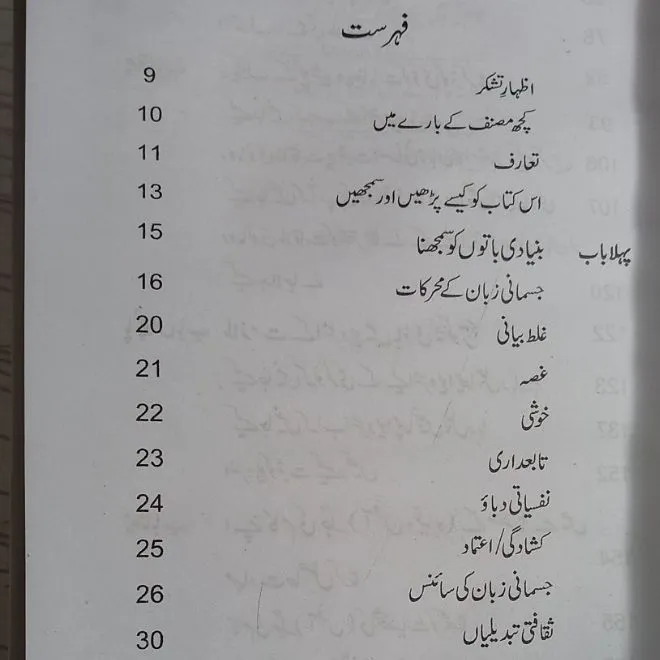 فہرست
اظہارِ تشکر 9
کچھ مصنف کے بارے میں 10
تعارف 11
اس کتاب کو کیسے پڑھیں اور سمجھیں 13
پہلا باب بنیادی باتوں کو سمجھنا 15
جسمانی زبان کے محرکات 16
غلط بیانی 20
غصہ 21
خوشی 22
تابعداری 23
نفسیاتی دباؤ 24
کشادگی/اعتماد 25
جسمانی زبان کی سائنس 26
ثقافتی تبدیلیاں 30